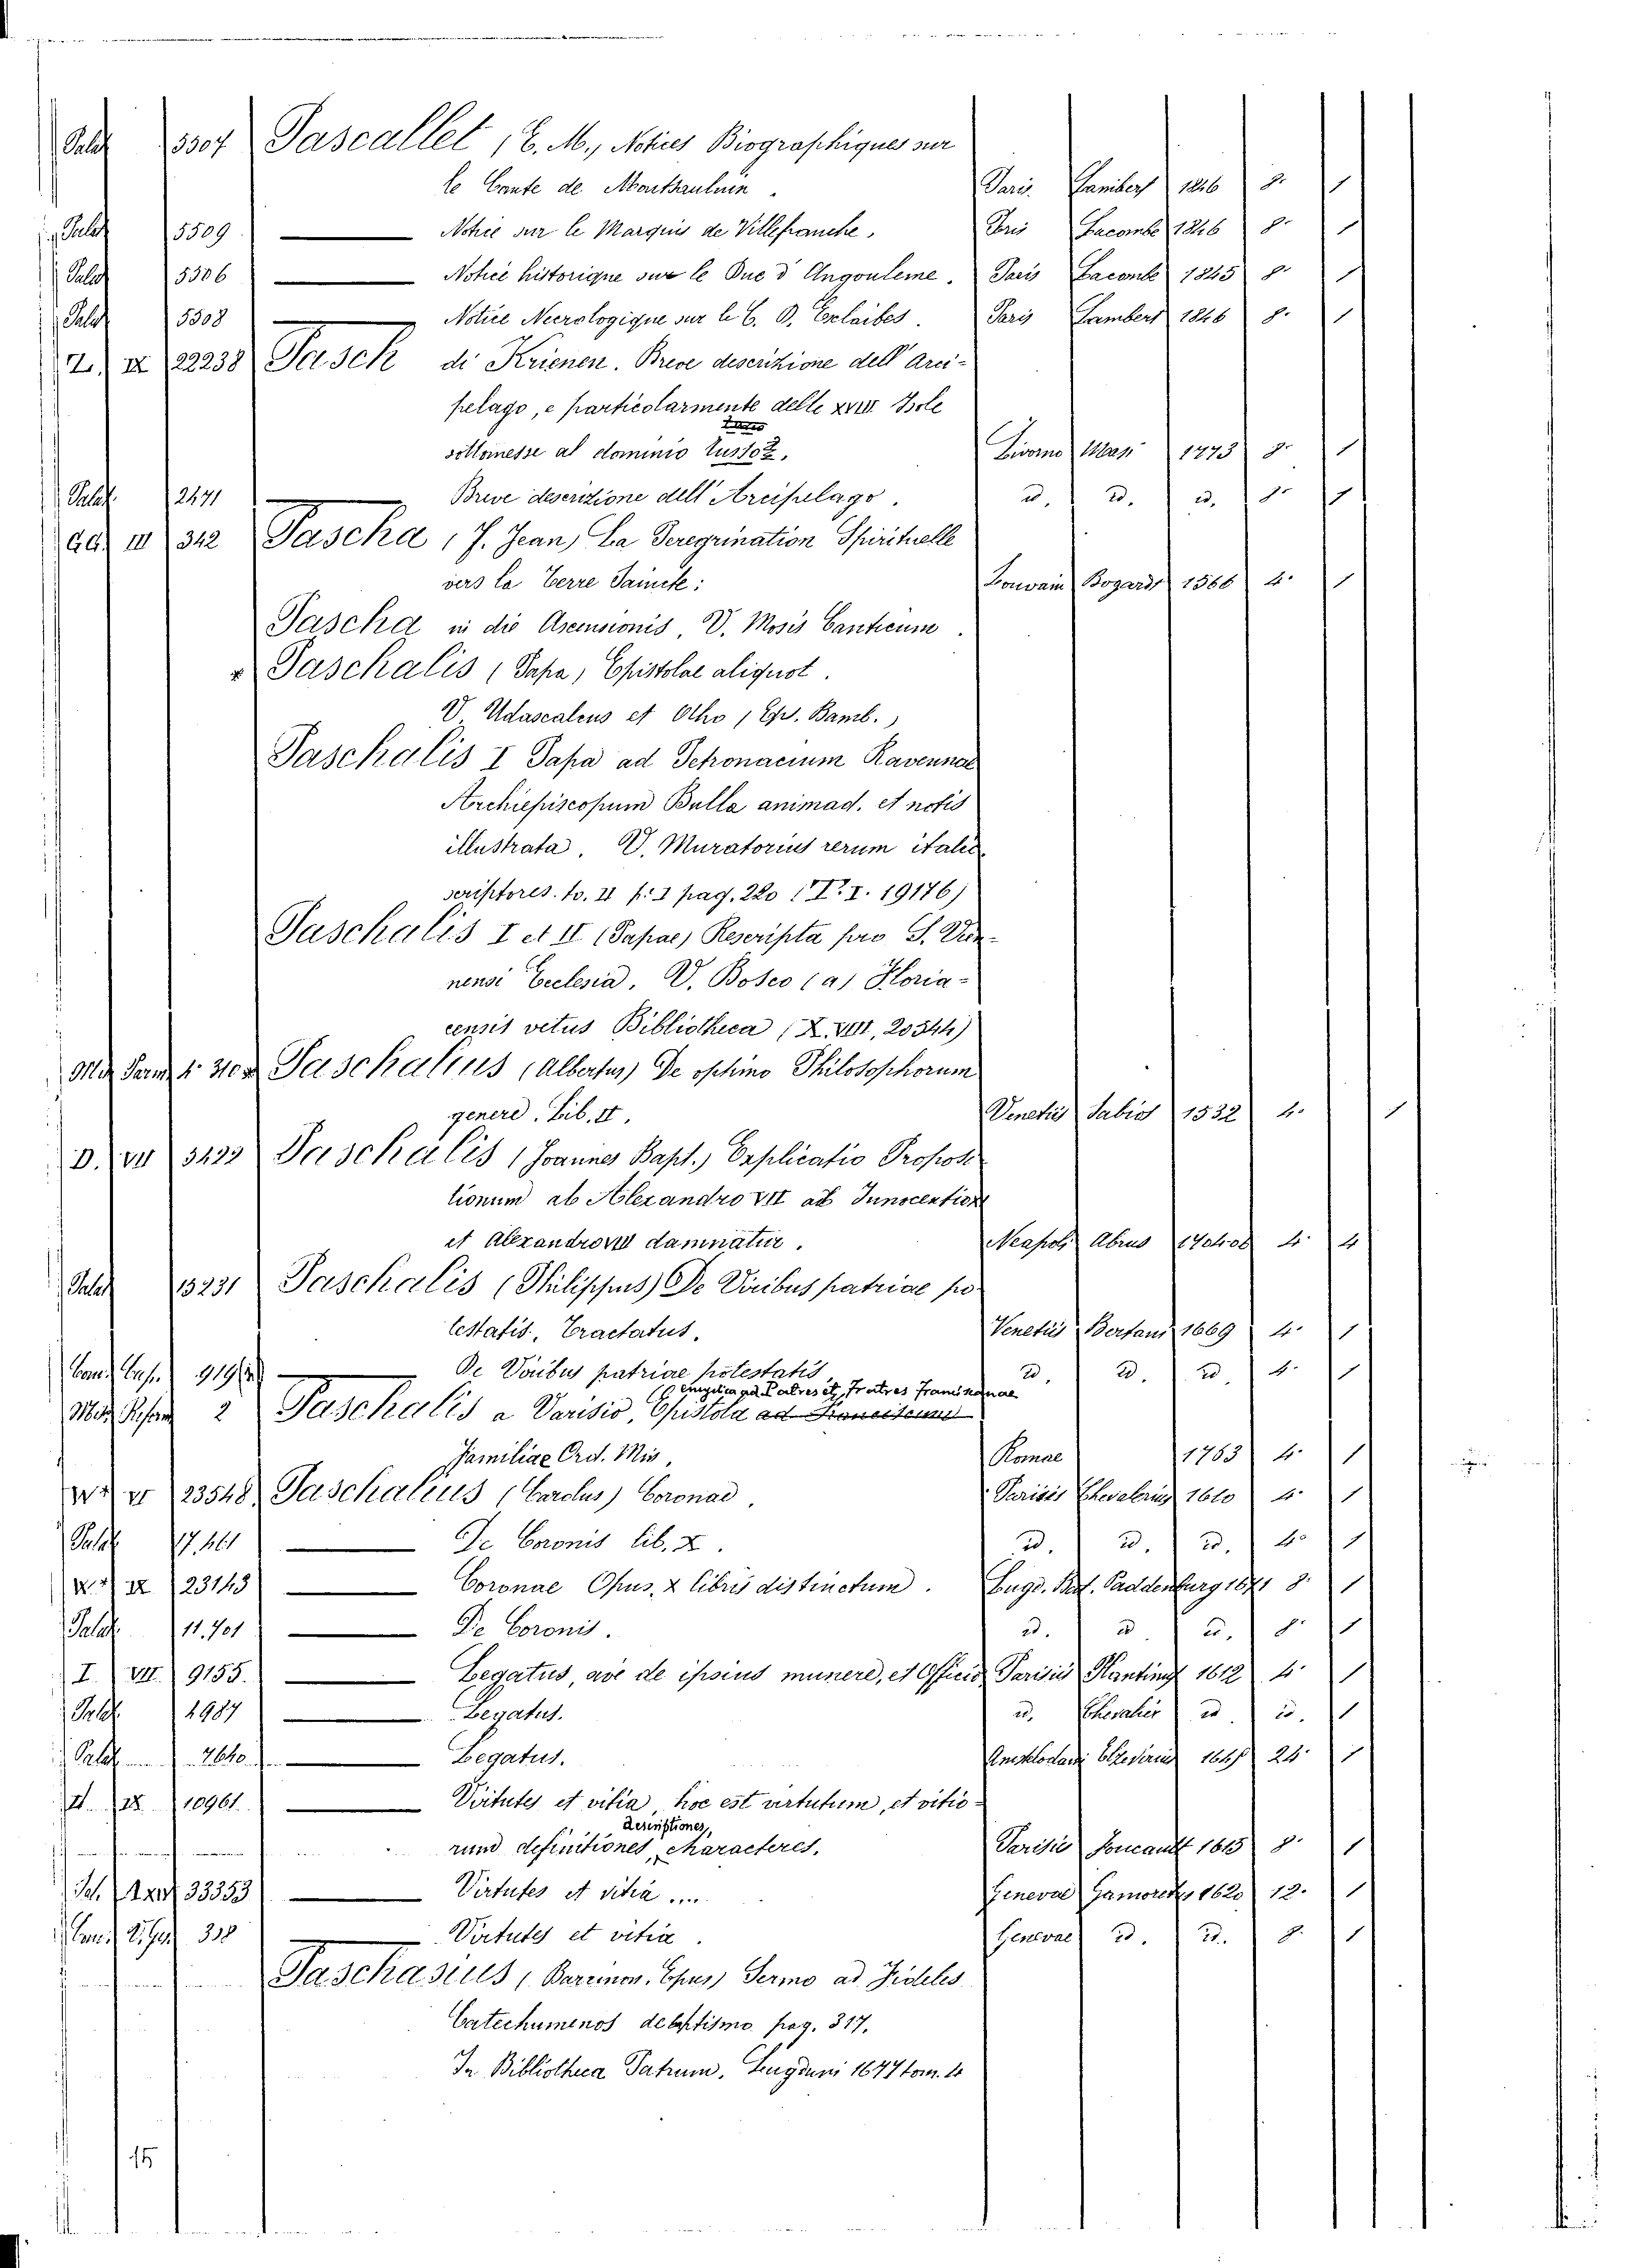 Palat 5507 Pascallet, E. M., Notices Biographiques sur
le Comte de Montsaulnin. Paris. Lambert 1846 8. 1
Palat 5509 — Notice sur le Marquis de Villefranche, Paris Lacombe 1846 8. 1
Palat 5506 — Notice historique sur le Duc d'Angouleme. Paris Lacombe 1845 8. 1
Palat 5508 — Notice Necrologique sur le C. D. Esclaibes. Paris Lambert 1846 8. 1
Z. IX 22238 Pasch di Krienen. Breve descrizione dell'Arci-
pelago, e particolarmente delle XVIII Isole
sottomesse al dominio Russo Livorno Masi 1773 8. 1
Palat. 2471 — Breve descrizione dell'Arcipelago. id. id. id. 8. 1
GG III 342 Pascha, J. Jean, La Peregrination Spirituelle
vers la Terre Saincte: Louvain Bogardt 1566 4. 1
Pascha in die Ascensionis, V. Mosis Canticum.
Paschalis (Papa) Epistolae aliquot.
V. Udascalcus et Otho (Ep. Bamb.)
Paschalis I Papa ad Petronacium Ravennae
Archiepiscopum Bulla animad. et notis
illustrata, V. Muratorius rerum italic
scriptores. to. II p. I pag. 220 (T. I. 19176)
Paschalis I et II (Papae) Rescripta pro S. Vien-
nensi Ecclesia, V. Bosco (a) Floria-
censis vetus Bibliotheca (X. VIII, 20544)
Paschalius (Albertus) De optimo Philosophorum
genere. Lib. II. Venetiis Sabio 1532 4. 1
D. VII 5422 Paschalis (Joannes Bapt.) Explicatio Proposi
tionum ab Alexandro VII ab Innocentio XI
et Alexandro VIII damnatur. Neapoli Abrus 4. 4
Palat 13231 Paschalis (Philippus) De Viribus patriae po
testatis, Tractatus. Venetiis Bertani 1669 4. 1
919 — De Viribus patriae potestatis id. id. id. 4. 1
encyclica ad Patres et Fratres Franciscanae
2 Paschalis a Varisio, Epistola ad Franciscanae
Familiae Ord. Min. Romae 1763 4. 1
VI 23548 Paschalius (Carolus) Coronae. Parisiis Chevalerius 1610 4. 1
Palat. 17.461 — De Coronis lib. X. id. id. id. 4. 1
IX 23143 — Coronae Opus, X libris distinctum. Lugd. Bat. Paddenburg 1671 8. 1
Palat. 11.701 — De Coronis. id. id id. 8. 1
I. VII. 9155. — Legatus, ave de ipsius munere, et Officio Parisiis Plantin 1612 4. 1
Palat. 4987 — Legatus. id. Chevalier id id. 1
Palat 7640 — Legatus. Amstelodami Elzevirius 24. 1
IX 10961 — Virtutes et vitia, hoc est virtutum, et vitio-
descriptiones,
rum definitiones, characteres. Parisiis Foucault 1615 8. 1
33353 — Virtutes et vitia .... Genevae Gamoretus 1620 12. 1
338 — Virtutes et vitia. Genevae id. id. 8. 1
Paschasius, Sermo ad Fideles
Catechumenos de baptismo pag. 317.
In Bibliotheca Patrum. Lugduni 1677 tom. 4
15